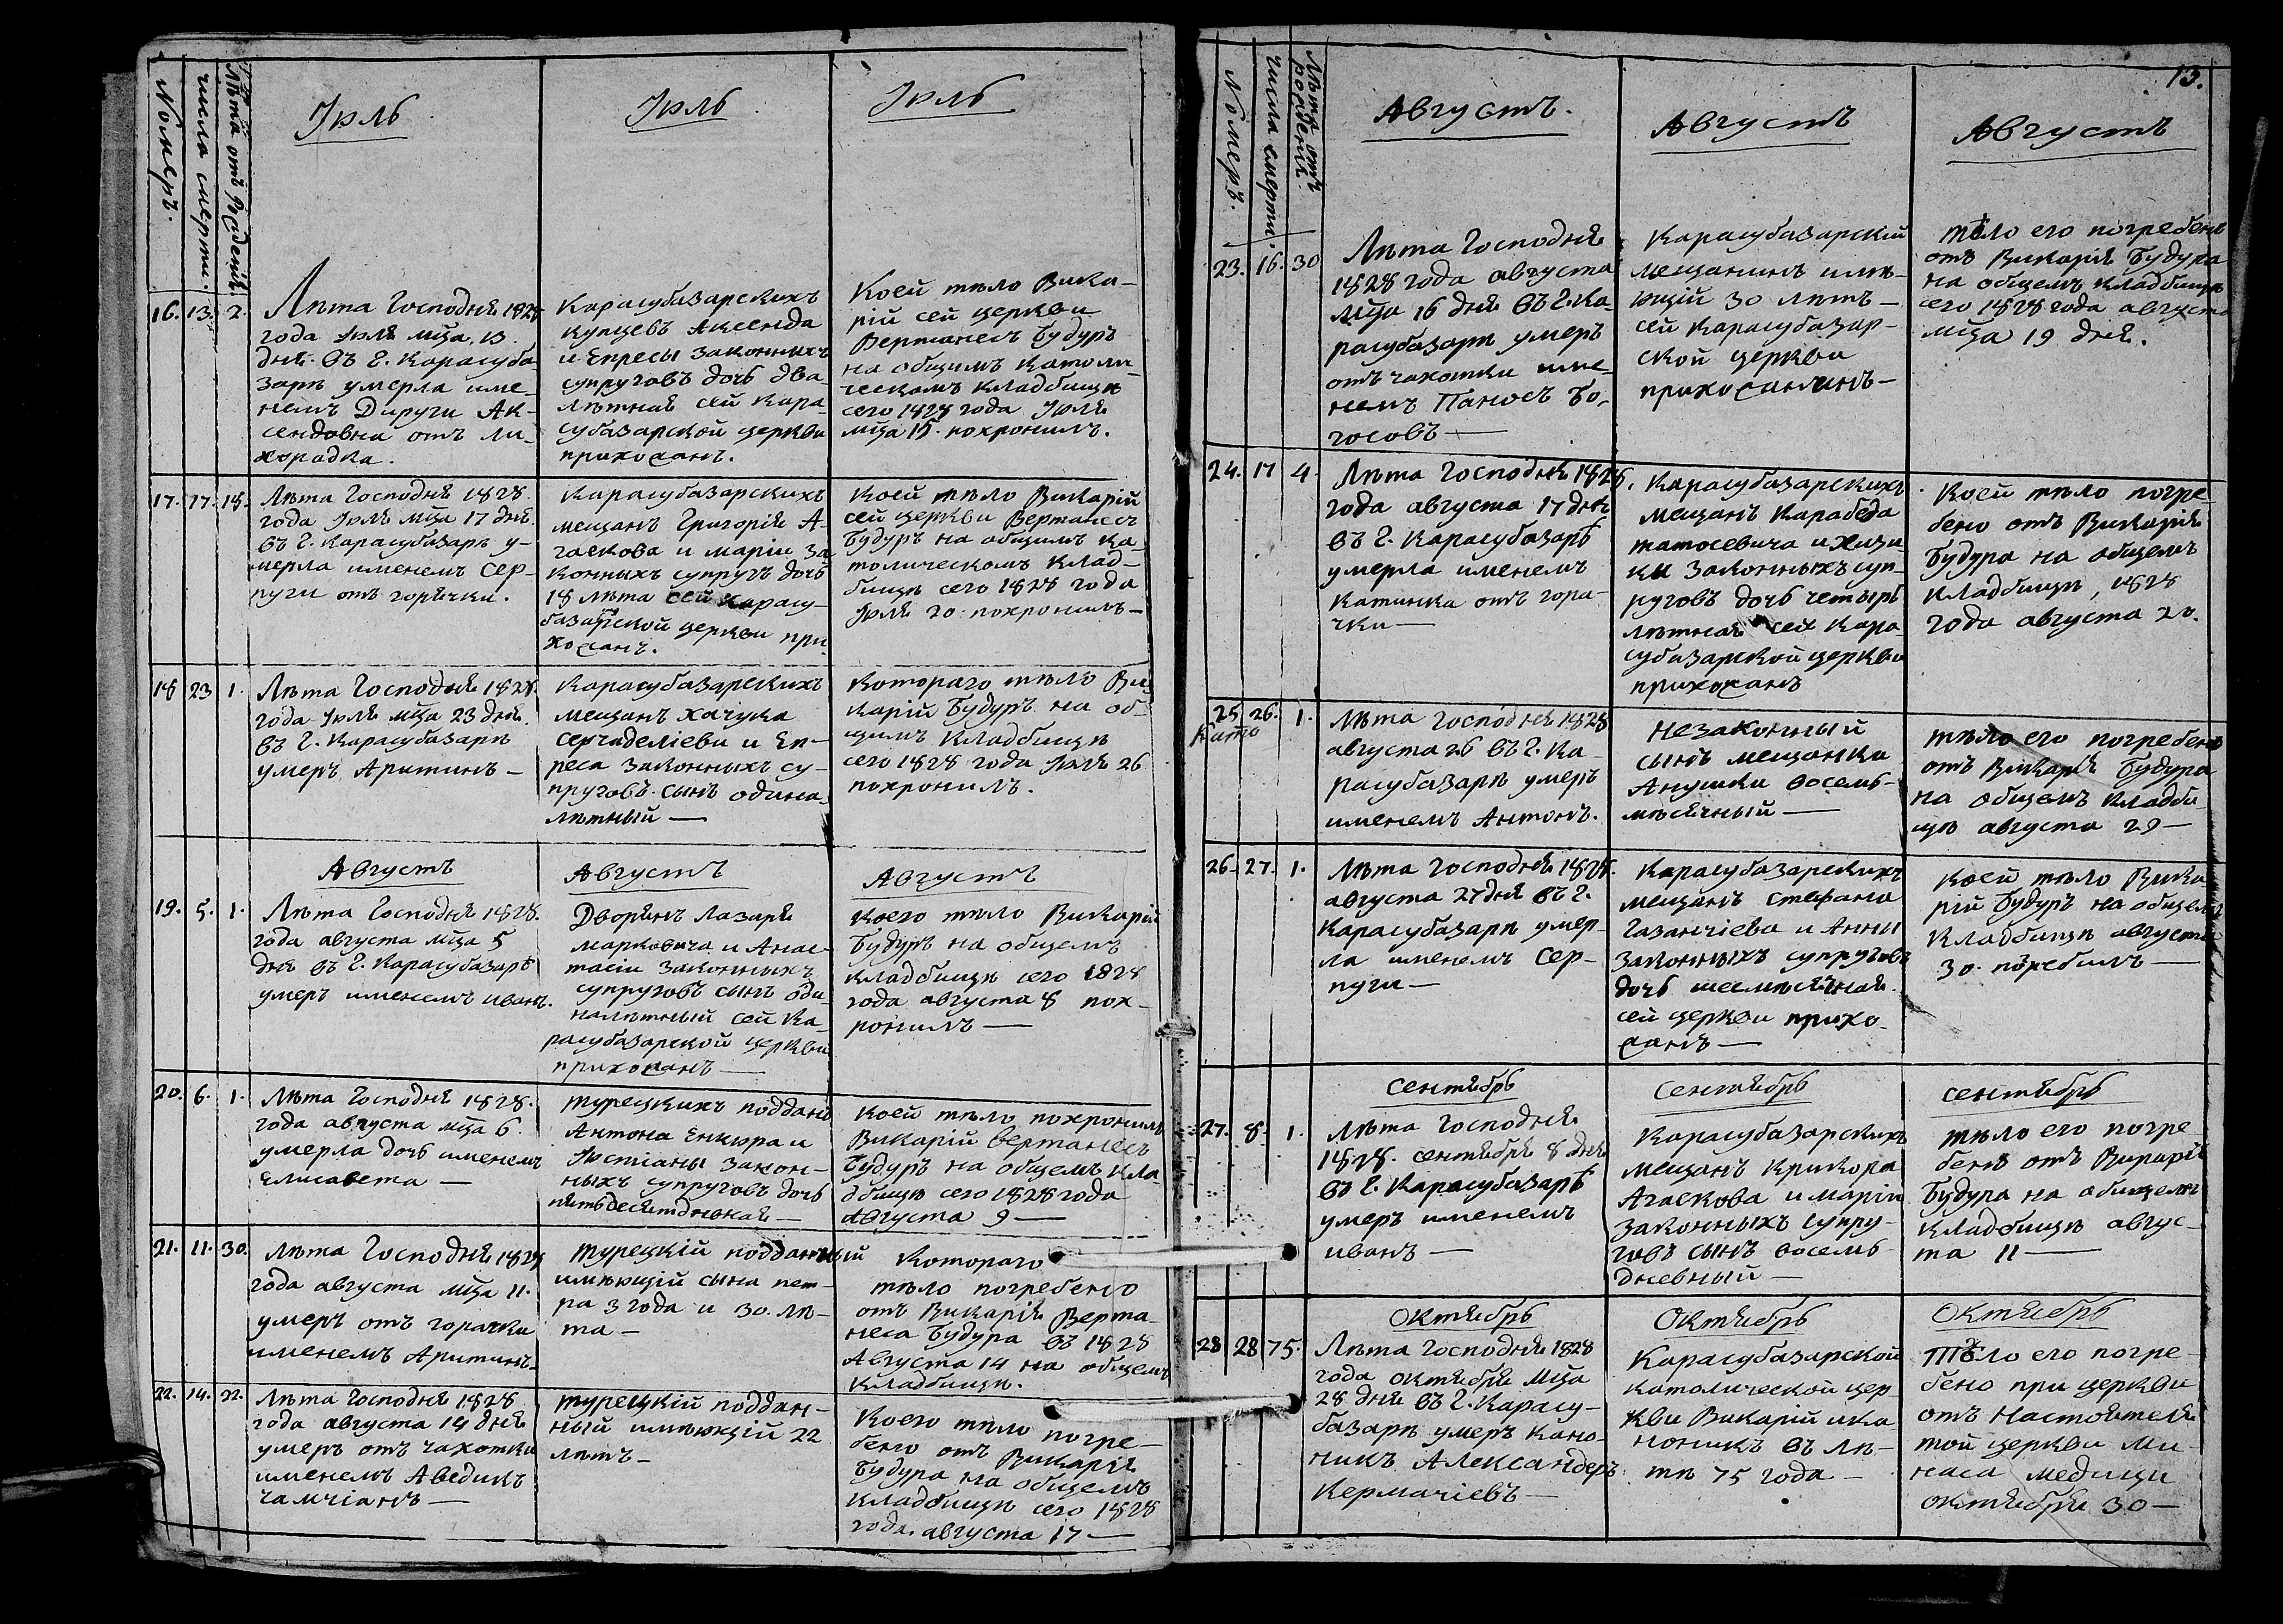 Номеръ.
числа смерти.
Лѣта отъ Рожденія
Іюль
Іюль
Іюль
16. 13. 2.
Лѣта Господня 1828
года Іюля мца 13
дня въ г. Карасуба-
зарѣ умерла име-
немъ Дируги Ак-
сендовна отъ ли-
хорадка.
Карасубазарскихъ
купцевъ Аксенда
и Епресы законныхъ
супруговъ дочь два
лѣтная сей Кара
субазарской церкви
прихожанъ.
Коей тѣло Вика-
рій сей церкви
Вертанесъ Будуръ
на общимъ Католи-
ческомъ кладбищѣ
сего 1828 года Іюля
мца 15. похронилъ.
17. 17. 18.
Лѣта Господня 1828.
года Іюля мца 17 дня.
въ г. Карасубазарѣ у-
мерла именемъ Сер-
пуги отъ горячки.
Карасубазарскихъ
мещанъ Григорія А-
гаскова и маріи за
конныхъ супругъ дочь
18 лѣта сей Карасу-
базарской церкви при
хожанъ.
Коей тѣло Викарій
сей церкви Вертанесъ
Будуръ на общимъ ка-
толическомъ клад-
бищѣ сего 1828 года
Іюля 20. похронилъ-
18 23 1.
Лѣта Господня 1828.
года Іюля мца 23 дня.
въ г. Карасубазарѣ
умеръ Аритинъ-
Карасубазарскихъ
мещанъ Хачука
серчаделіева и Еп-
реса законныхъ су-
пруговъ сынъ одина-
лѣтный-
Котораго тѣло Ви
карій Будуръ на об-
щимъ кладбищѣ
сего 1828 года Іюля 26
похронилъ.
Августъ
Августъ
Августъ
19. 5. 1.
Лѣта Господня 1828.
года августа мца 5
дня въ г. Карасубазарѣ
умеръ именемъ иванъ.
Дворянъ Лазаря
марковича и Анас-
тасіи законныхъ
супруговъ сынъ оди-
налѣтный сей Ка-
расубазарской церкви
прихожанъ-
коего тѣло Викарій
Будуръ на общемъ
кладбищѣ сего 1828
года августа 8 пох-
ронилъ-
20. 6. 1.
Лѣта Господня 1828.
года августа мца 6.
умерла дочь именемъ
Елисавета-
турецкихъ подданъ
Антона Енкюра и
Іюстіаны закон-
ныхъ супруговъ дочь
пятьдесятдневная-
Коей тѣло похронилъ
Викарій Вертанесъ
Будуръ на общемъ кла
дбищѣ сего 1828 года
Августа 9-
21. 11. 30.
Лѣта Господня 1828
года августа мца 11.
умеръ отъ горячки
именемъ Аритинъ-
турецкій подданный
имѣющій сына пет-
ра 3 года и 30 лѣ-
та-
Котораго
тѣло погребено
отъ Викарія Верта-
неса Будура въ 1828
Августа 14 на общемъ
кладбищѣ.
22. 14. 22.
Лѣта Господня 1828
года августа 14 дня
умеръ отъ чахотки
именемъ Аведикъ
чамчіанъ-
турецкій поддан-
ный имѣющій 22
лѣтъ-
Коего тѣло погре-
бено отъ Викарія
Будура на общемъ
кладбищѣ сего 1828
года августа 17-
13.
Номеръ.
числа смерти.
Лѣта отъ
рожденія.
Августъ.
Августъ
Августъ
23. 16. 30
Лѣта Господня
1828 года августа
мца 16 дня въ г. Ка-
расубазарѣ умеръ
отъ чахотки име-
немъ Паносъ Бо-
госовъ-
Карасубазарскій
мещанинъ имѣ-
ющій 30 лѣтъ-
сей Карасубазар-
ской церкви
прихожанинъ-
тѣло его погребенъ
отъ Викарія Будура
на общемъ кладбищѣ
сего 1828 года августа
мца 19 дня.
24. 17 4.
Лѣта Господня 1828.
года августа 17 дня
въ г. Карасубазарѣ
умерла именемъ
Катинка отъ горя-
чки-
Карасубазарскихъ
мещанъ Карабеда
татосевича и хази-
ки законныхъ суп-
руговъ дочь четыры
лѣтная сей Кара-
субазарской церкви
прихожанъ
Коей тѣло погре-
бено отъ Викарія
Будура на общемъ
кладбищѣ, 1828
года августа 20.
25 26. 1.
Лѣта Господня 1828
августа 26 въ г. Ка-
расубазарѣ умеръ
именемъ Антонъ.
Незаконный
сынъ мещанка
Анушки восемь-
мѣсячный-
тѣло его погребенъ
отъ Викарія Будура
на общемъ кладби-
щѣ августа 29-
26. 27. 1.
Лѣта Господня 1828.
августа 27 дня въ г.
Карасубазарѣ умер-
ла именемъ Сер-
пуги-
Карасубазарскихъ
мещанъ стефана
Газанчіева и Анны
законныхъ супруговъ
дочь шесмѣсячная.
сей церкви прихо-
жанъ-
коей тѣло Вика
рій Будуръ на общемъ
кладбищѣ августа
30. погребилъ-
сентябрь
сентябрь
сентябрь
27. 8. 1.
Лѣта Господня
1828. сентября 8 дня
въ г. Карасубазарѣ
умеръ именемъ
иванъ-
Карасубазарскихъ
мещанъ Крикора
Агаскова и маріи
законныхъ супру-
говъ сынъ восемь
дневный-
тѣло его погре-
бенъ отъ Вирарія
Будура на общемъ
кладбищѣ авгус-
та 11-
Октябрь
Октябрь
Октябрь
28 28 75.
Лѣта Господня 1828
года октября мца
28 дня въ г. Карасу-
базарѣ умеръ кано-
никъ Александеръ
Кермачіевъ-
Карасубазарской
католической цер
кви Викарій и ка
ноникъ въ лѣ-
тѣ 75 года-
Тѣло его погре-
бено при церкви
отъ настоятеля
той церкви Ми-
наса медици
октября 30-